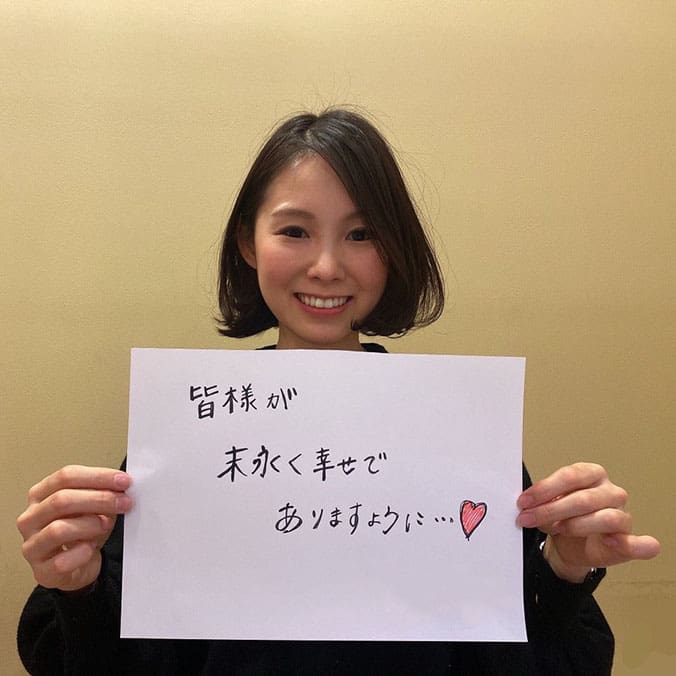 皆様が
末永く幸せで
ありますように…